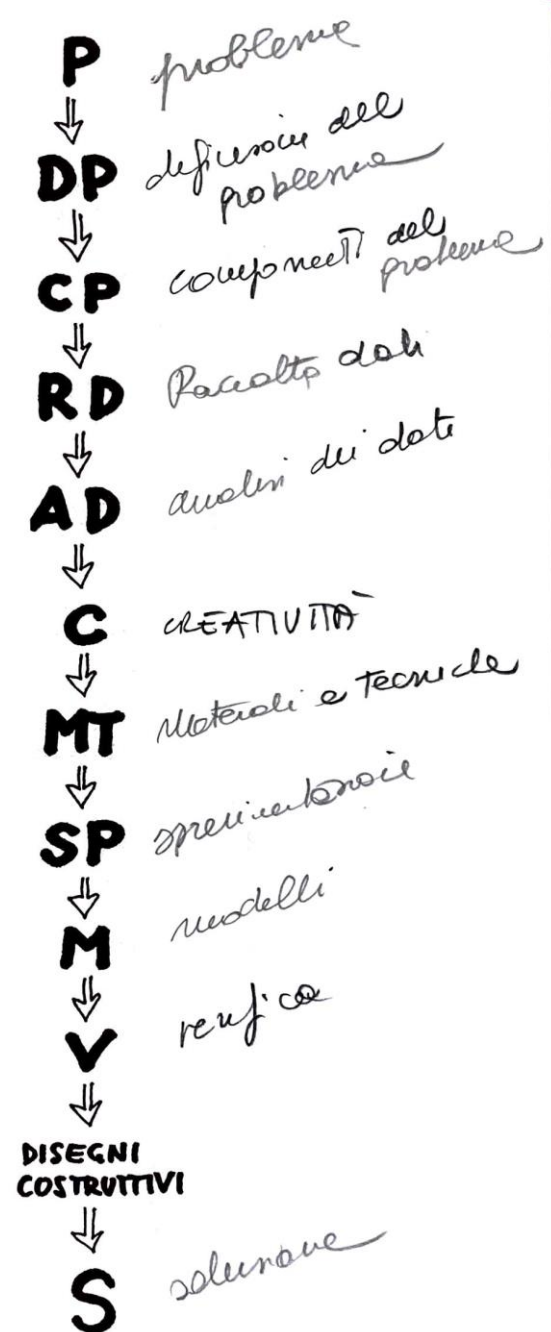 P problema
DP definizione del
problema
CP componenti del
problema
RD Raccolta dati
AD analisi dei dati
C CREATIVITÀ
MT Materiali e Tecniche
SP sperimentazione
M modelli
V verifica
DISEGNI
COSTRUTTIVI
S soluzione